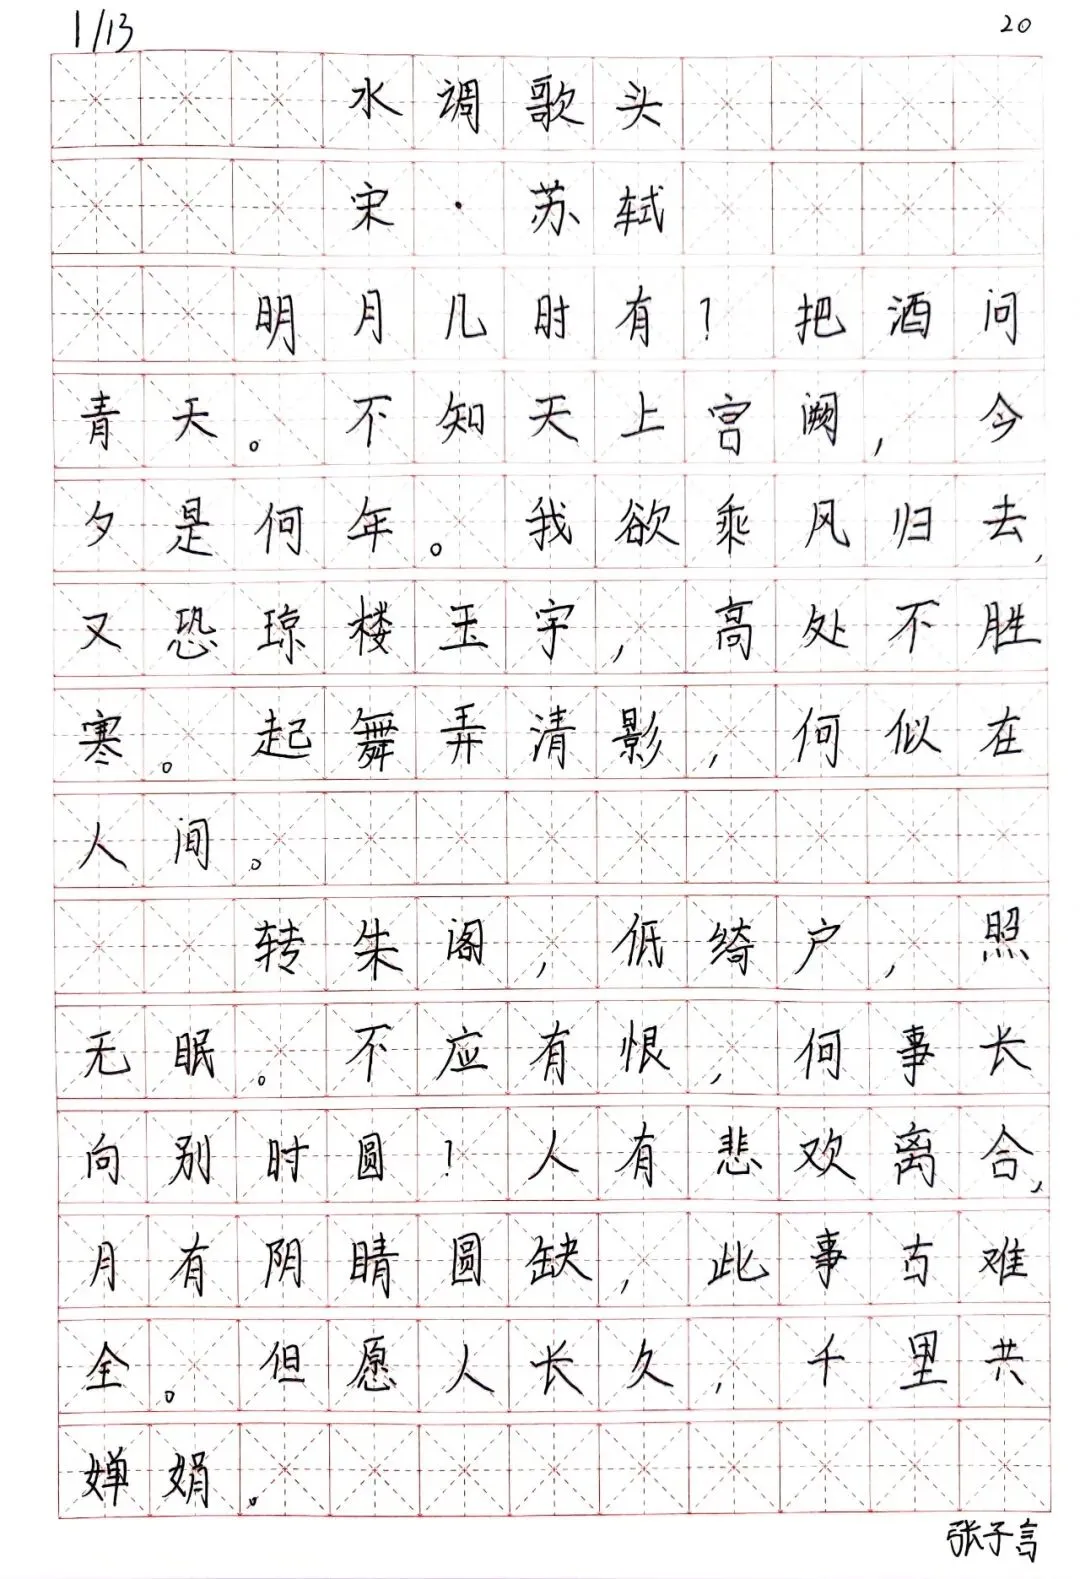 1/13
20
水调歌头
宋·苏轼
明月几时有？把酒问
青天。不知天上宫阙，今
夕是何年。我欲乘风归去，
又恐琼楼玉宇，高处不胜
寒。起舞弄清影，何似在
人间。
转朱阁，低绮户，照
无眠。不应有恨，何事长
向别时圆！人有悲欢离合，
月有阴晴圆缺，此事古难
全。但愿人长久，千里共
婵娟。
张子言